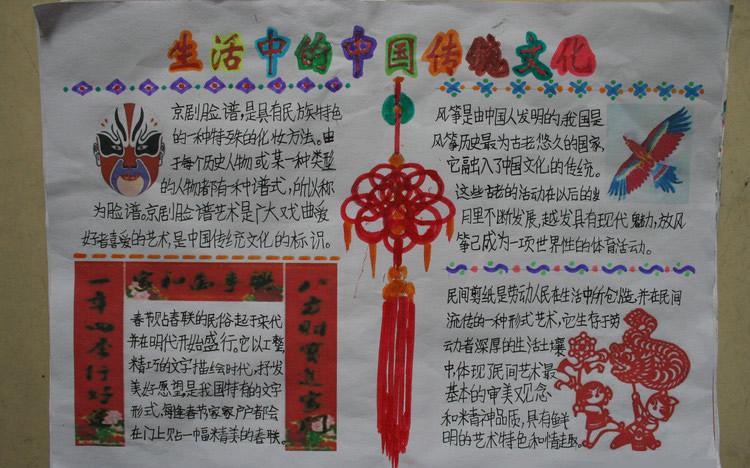 生活中的中国传统文化
京剧脸谱,是具有民族特色
的一种特殊的化妆方法。由
于每个历史人物或某一种类型
的人物都有一种谱式,所以称
为脸谱。京剧脸谱艺术是广大戏曲爱
好者喜爱的艺术,是中国传统文化的标识。
风筝是由中国人发明的,我国是
风筝历史最为古老悠久的国家,
它融入了中国文化的传统。
这些古老的活动在以后的岁
月里不断发展,越发具有现代魅力,放风
筝已成为一项世界性的体育活动。
家和万事兴
一年四季行好运
八方财宝进家门
春节贴春联的民俗起于宋代
并在明代开始盛行。它以工整,
精巧的文字描绘时代,抒发
美好愿望,是我国特有的文字
形式,每逢春节家家户户都会
在门上贴一幅精美的春联。
民间剪纸是劳动人民在生活中所创造,并在民间
流传的一种形式艺术,它生存于劳
动者深厚的生活土壤
中体现了民间艺术最
基本的审美观念
和精神品质,具有鲜
明的艺术特色和情趣。